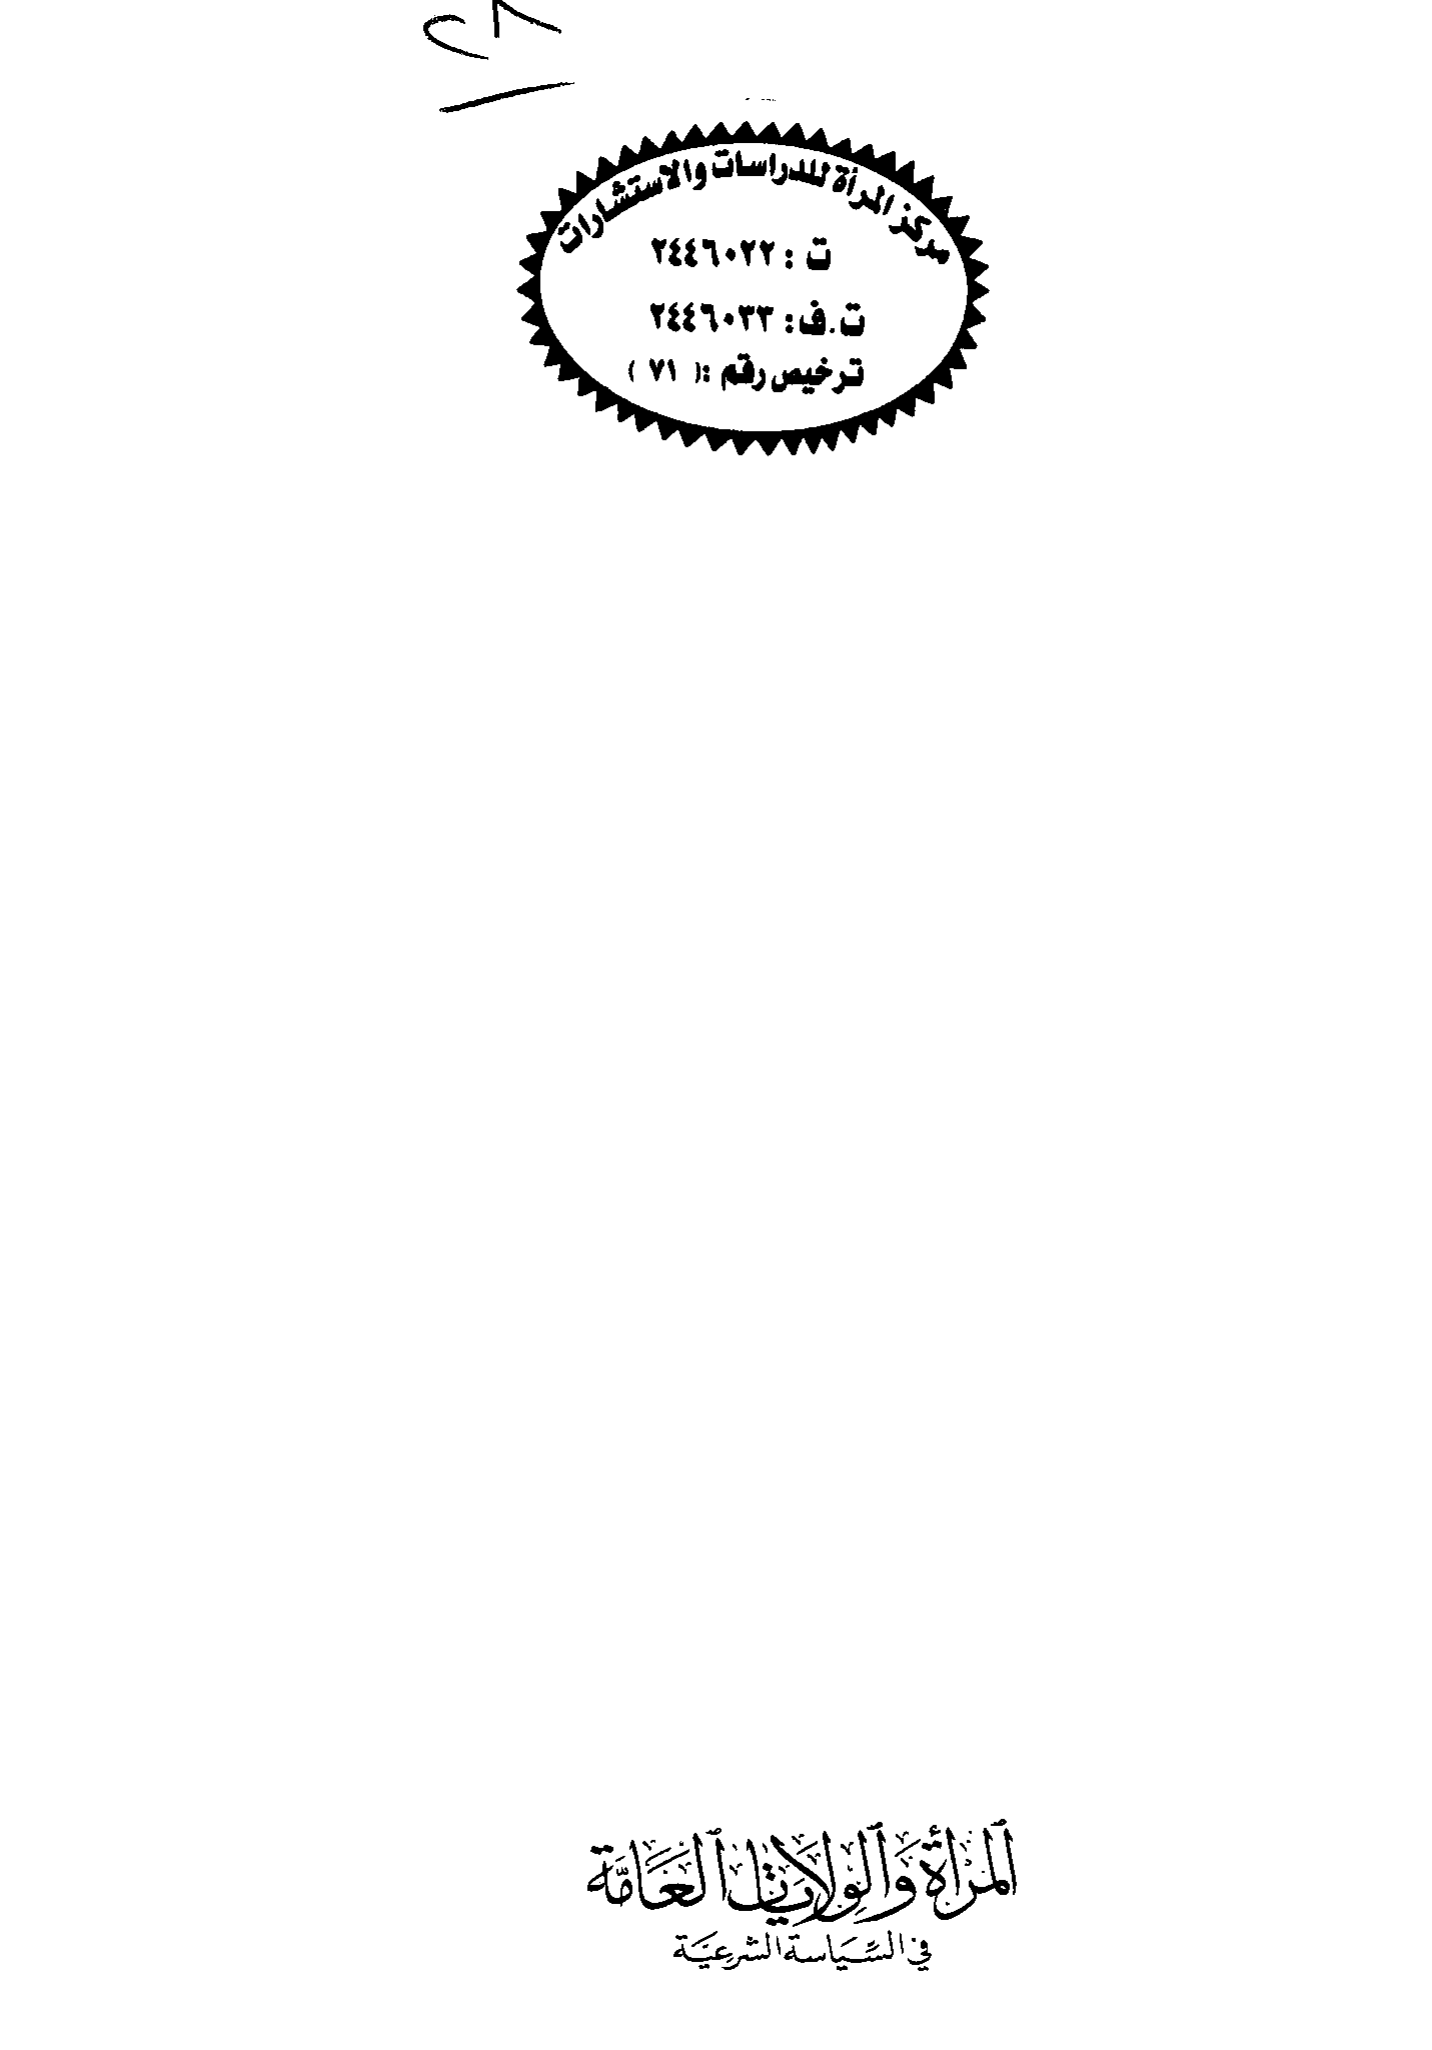 مركز المرأة للدراسات والاستشارات
ت : ٢٤٤٦٠٢٢
ت.ف: ٢٤٤٦٠٣٣
ترخيص رقم :( ٧١ )
المرأة والولايات العامة
في السياسة الشرعية